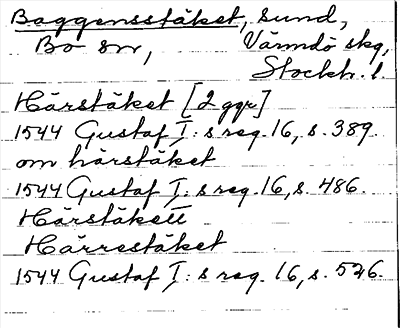 Baggensstäket, sund,
Bo sn, Värmdö skg,
Stockh. l.
Härstäket [2 ggr]
1544 Gustaf I: s reg. 16, s. 389.
om härstäket
1544 Gustaf I: s reg. 16, s. 486.
Härstäkett
Härrestäket
1544 Gustaf I: s reg. 16, s. 526.